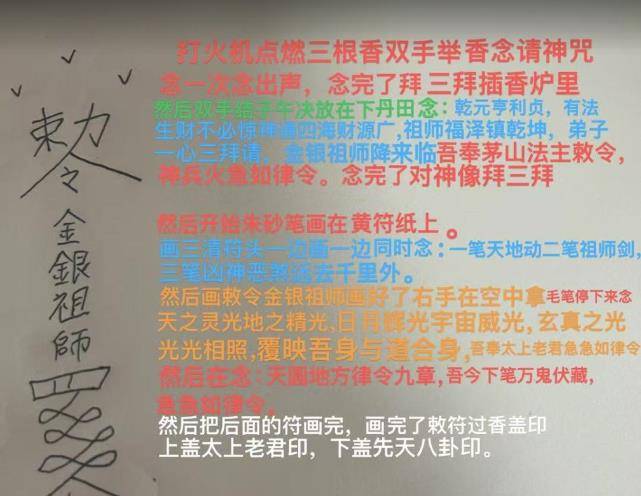 勅令
金
銀
祖
師
打火机点燃三根香双手举香念请神咒
念一次念出声，念完了拜 三拜插香炉里
然后双手结子午决放在下丹田念：乾元亨利贞，有法
生财不必惊神通四海财源广,祖师福泽镇乾坤，弟子
一心三拜请，金银祖师降来临吾奉茅山法主敕令，
神兵火急如律令。念完了对神像拜三拜
然后开始朱砂笔画在黄符纸上 。
画三清符头一边画一边同时念：一笔天地动二笔祖师剑,
三笔凶神恶煞远去千里外。
然后画敕令金银祖师画好了右手在空中拿毛笔停下来念
天之灵光地之精光,日月辉光宇宙威光, 玄真之光
光光相照,覆映吾身与道合身,吾奉太上老君急急如律令
然后在念：天圆地方律令九章,吾今下笔万鬼伏藏,
急急如律令。
然后把后面的符画完，画完了敕符过香盖印
上盖太上老君印，下盖先天八卦印。